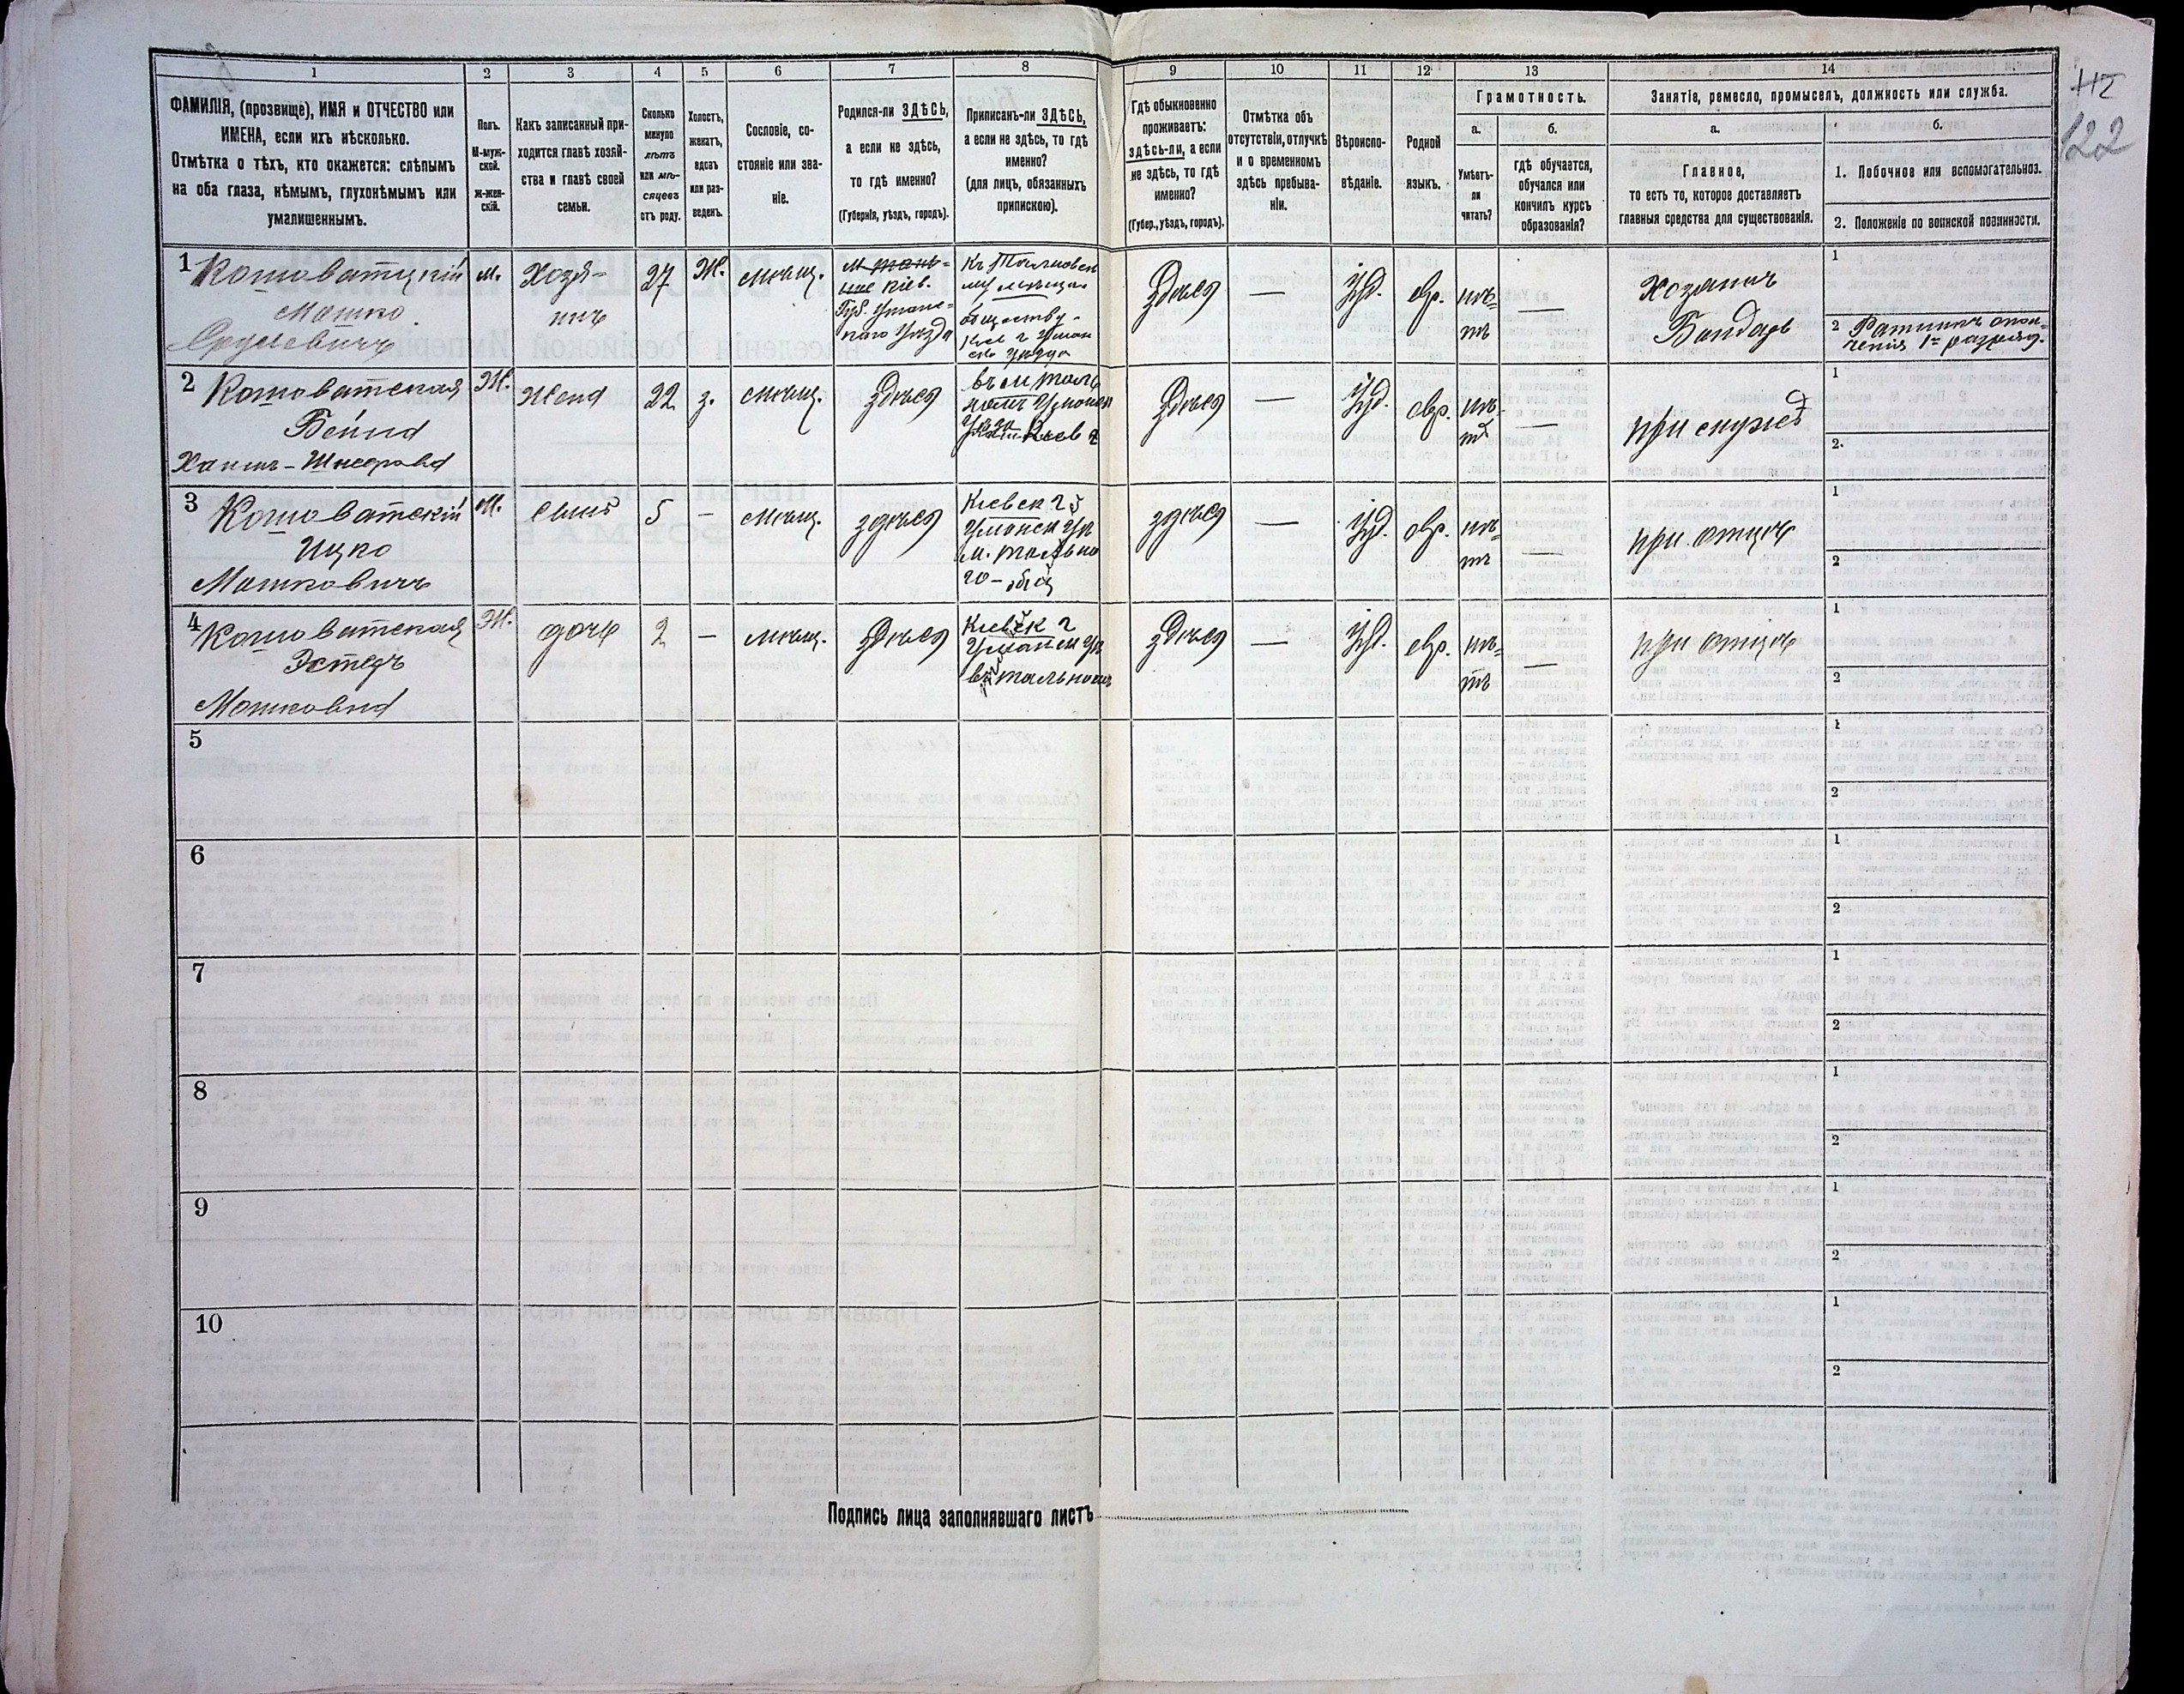 1
2
3
4
5
6
7
8
9
10
11
12
13
14
112
122
ФАМИЛІЯ, (прозвище), ИМЯ и ОТЧЕСТВО или
ИМЕНА, если ихъ нѣсколько.
Отмѣтка о тѣхъ, кто окажется: слѣпымъ
на оба глаза, нѣмымъ, глухонѣмымъ или
умалишеннымъ.
Полъ.
М-муж-
ской.
Ж-жен-
скій.
Какъ записанный при-
ходится главѣ хозяй-
ства и главѣ своей
семьи.
Сколько
минуло
лѣтъ
или мѣ-
сяцевъ
отъ роду.
Холостъ,
женатъ,
вдовъ
или раз-
веденъ.
Сословіе, со-
стояніе или зва-
ніе.
Родился-ли ЗДѢСЬ,
а если не здѣсь,
то гдѣ именно?
(Губернія, уѣздъ, городъ).
Приписанъ-ли ЗДѢСЬ,
а если не здѣсь, то гдѣ
именно?
(для лицъ, обязанныхъ
припискою).
Гдѣ обыкновенно
проживаетъ:
здѣсь-ли, а если
не здѣсь, то гдѣ
именно?
(Губер., уѣздъ, городъ).
Отмѣтка объ
отсутствіи, отлучкѣ
и о временномъ
здѣсь пребыва-
ніи.
Вѣроиспо-
вѣданіе.
Родной
языкъ.
Грамотность.
а.
Умѣетъ-
ли
читать?
б.
гдѣ обучается,
обучался или
кончилъ курсъ
образованія?
Занятіе, ремесло, промыселъ, должность или служба.
а.
Главное,
то есть то, которое доставляетъ
главныя средства для существованія.
б.
1. Побочное или вспомогательное.
2. Положеніе по воинской повинности.
1
Кошоватцкій
Мошко
Сруневичъ
м.
Хозя-
инъ
27
Ж.
мѣщ.
Кіев.
Губ. Уманс-
каго Уѣзда
обществу
Здѣся
—
Іуд.
евр.
нѣ-
тъ
—
Хозяинъ
Бондарь
1
2 Ратникъ опол-
ченія 1го разряд.
2
Кошоватская
Бейла
Хаимъ-Шнеровна
Ж.
Жена
22
з.
мѣщ.
Здѣся
Здѣся
—
Іуд.
евр.
нѣ-
тъ
—
при мужѣ
1
2.
3
Кошоватскій
Ицко
Мошковичъ
М.
Сынъ
5
—
мѣщ.
здѣся
Кіевск г
Уманск Уѣ
м. тально
го-общ
здѣся
—
Іуд.
евр.
нѣ-
тъ
—
при отцѣ
1
2
4
Кошоватская
Эстеръ
Мошковна
Ж.
дочь
2
—
мѣщ.
Здѣся
Кіевск г
Уманск Уѣ
въ тальномъ
здѣся
—
Іуд.
евр.
нѣ-
тъ
—
при отцѣ
1
2
5
1
2
6
1
2
7
1
2
8
1
2
9
1
2
10
1
2
Подпись лица заполнявшаго листъ